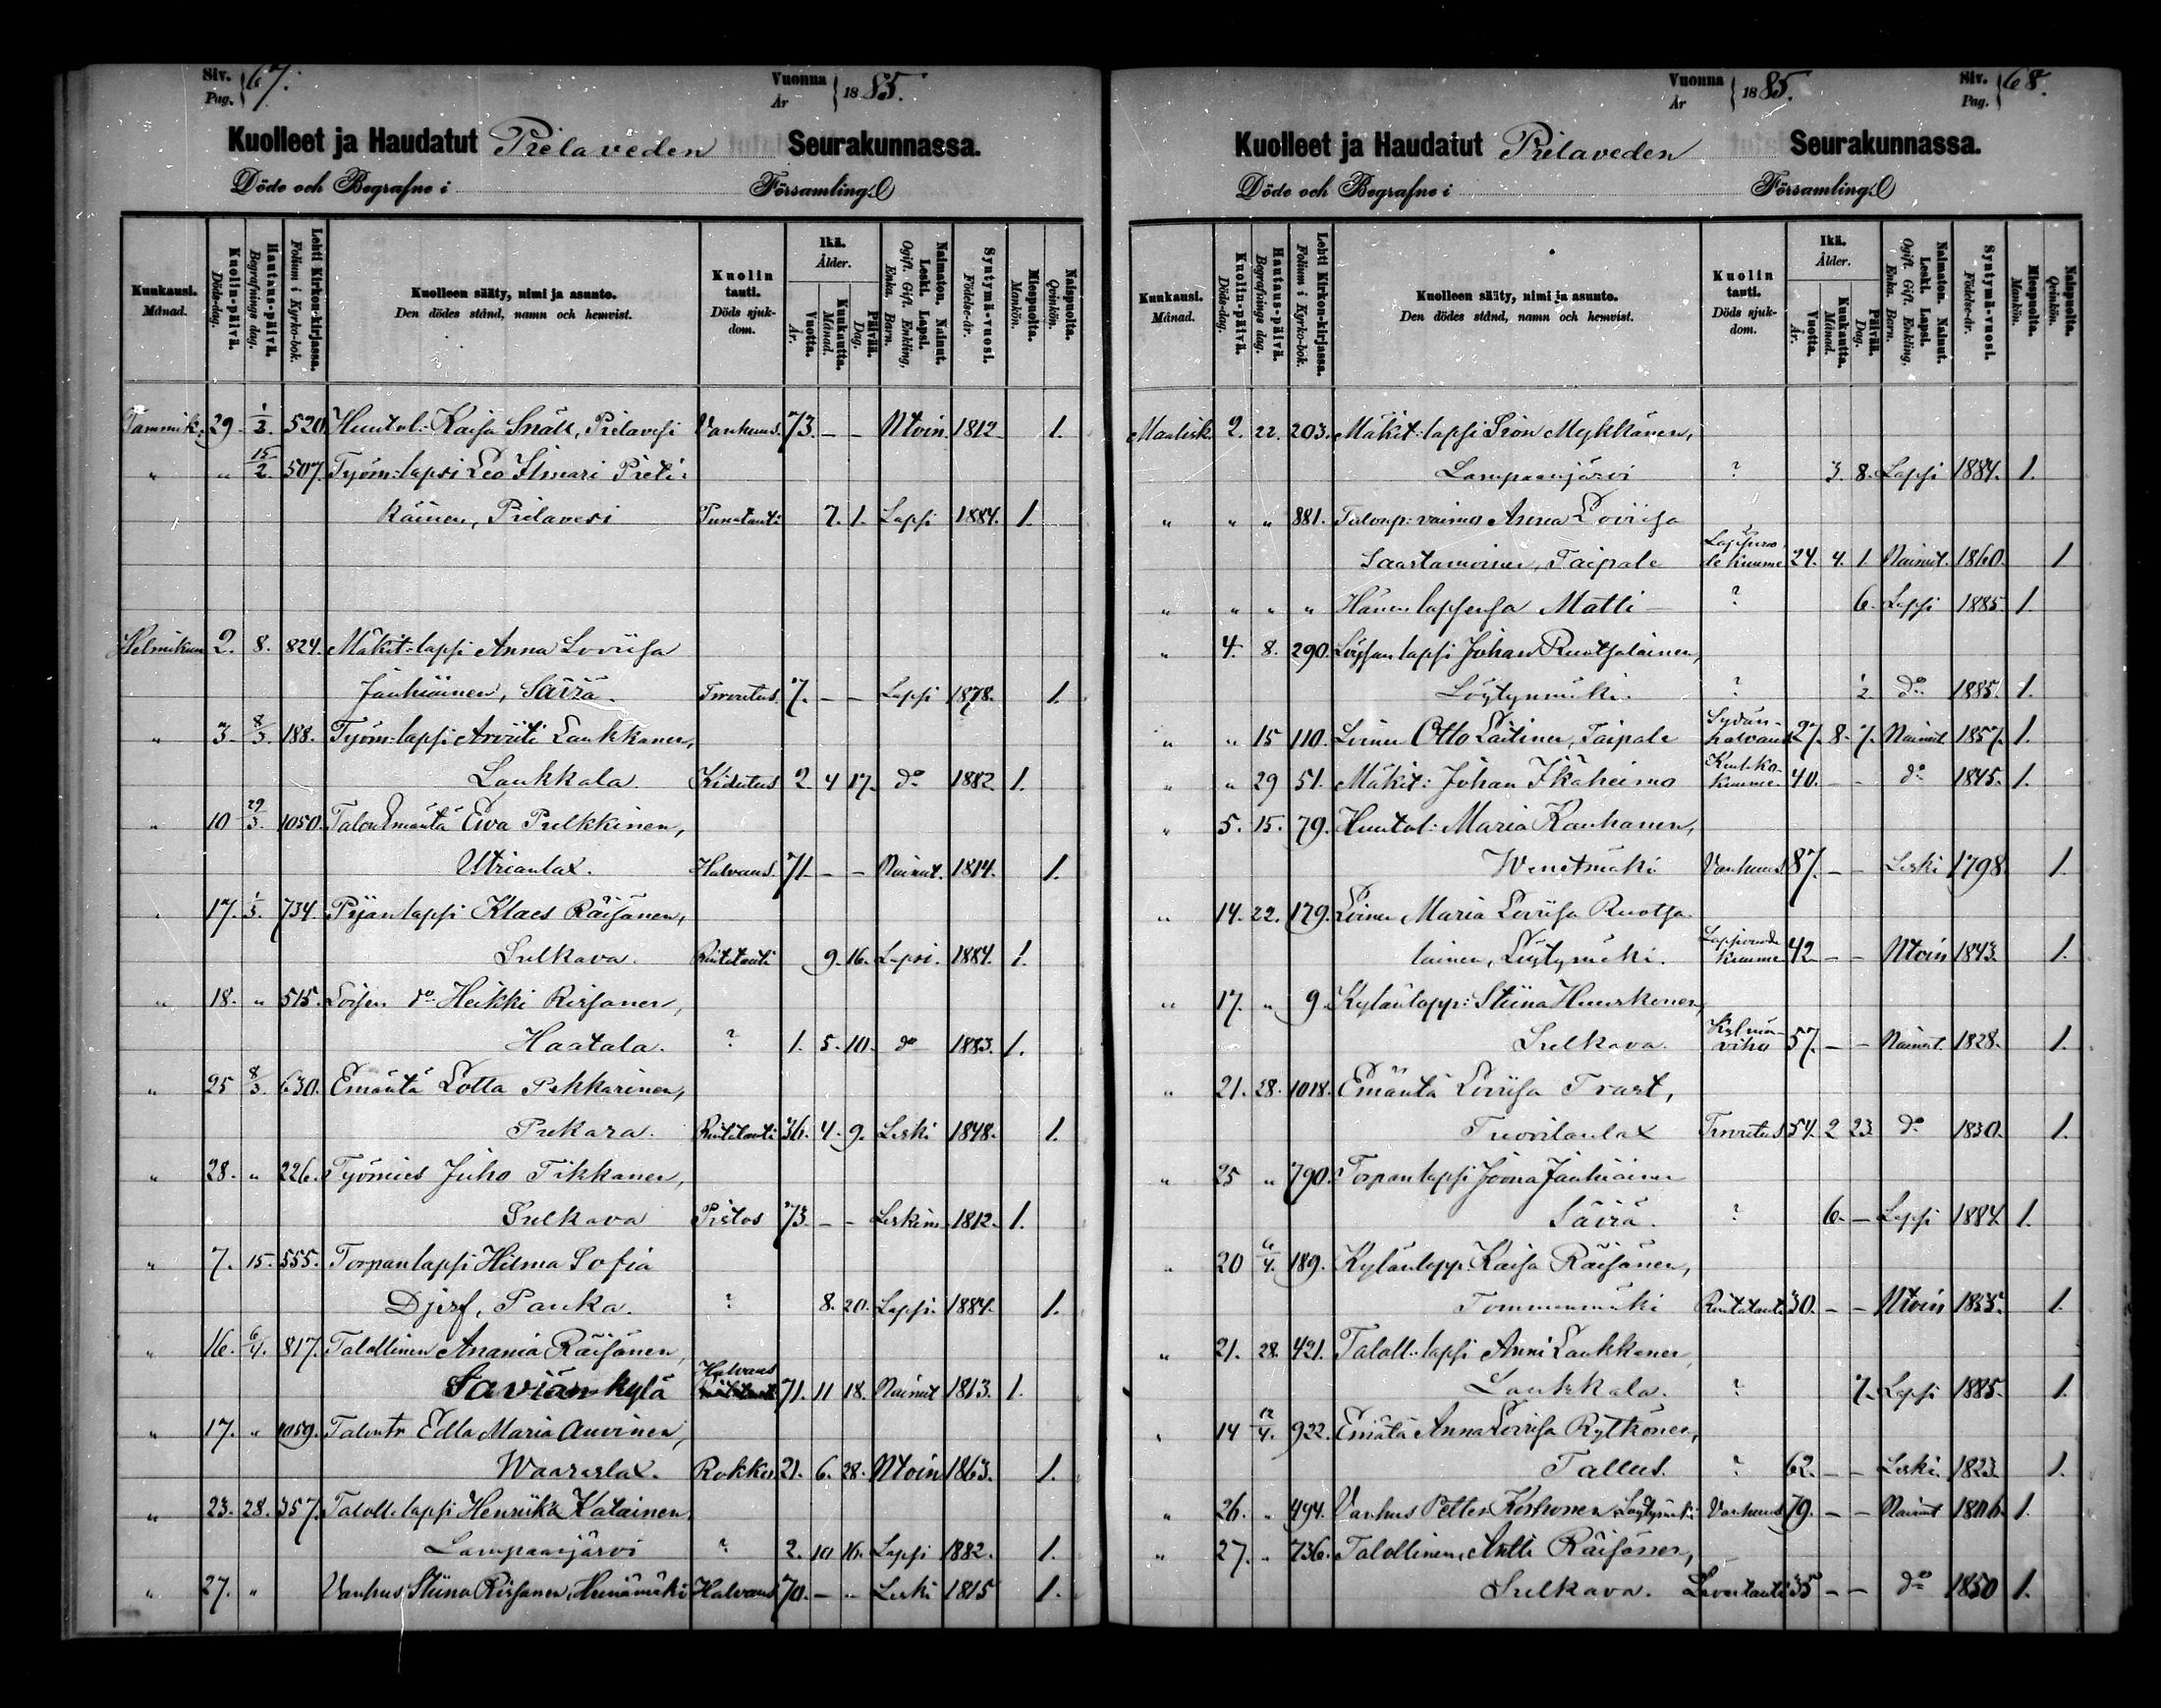 Siv. Pag. 67.
Vuonna År 1885.
Kuolleet ja Haudatut Pielaveden Seurakunnassa.
Döde och Begrafne i Församling.
Kuukausi. Månad.
Kuolin-päivä. Döds-dag.
Hautaus-päivä. Begrafnings dag.
Lehti Kirkon-kirjassa. Folium i Kyrko-bok.
Kuolleen sääty, nimi ja asunto. Den dödes stånd, namn och hemvist.
Kuolin tauti. Döds sjukdom.
Ikä. Ålder.
Vuotta. År.
Kuukautta. Månad.
Päivää. Dag.
Naimaton. Nainut. Leski. Lapsi. Ogift. Gift. Enkling, Enka. Barn.
Syntymä-vuosi. Födelse-år.
Miespuolta. Mankön.
Naispuolta. Qvinkön.
Tammik. 29. 1/3. 520. Huutol: Kaisa Snäll, Pielavesi Vanhuus. 73. - - Ntoin 1812. 1.
" " 15/2. 507. Työm: lapsi Leo Ilmari Pieti-
käinen, Pielavesi Punatauti 7. 1. Lapsi 1884. 1.
Helmikuu 2. 8. 824. Mäkit: lapsi Anna Loviisa
Jauhiainen, Säviä. Turvutus 7. - - Lapsi 1878. 1.
" 3. 8/3. 188. Työm: lapsi Arviiti Laukkanen,
Laukkala. Kidutus 2. 4 17. do 1882. 1.
" 10 29/3. 1050. Talon Emäntä Eva Pulkkinen,
Utrianlax. Halvaus. 71. - - Nainut. 1814. 1.
" 17. 1/3. 734 Pijan lapsi Klaes Räisänen,
Sulkava. Riutatauti 9. 16. Lapsi. 1884. 1.
" 18. " 515. Loisen do Heikki Rissanen,
Haatala. ? 1. 5. 10. do 1883. 1.
" 25 8/3. 630. Emäntä Lotta Pekkarinen,
Pukara. Riutatauti 36. 4. 9. Leski 1848. 1.
" 28. " 226. Työmies Juho Tikkanen,
Sulkava Pistos 73. - - Leskim. 1812. 1.
" 7. 15. 555. Torpan lapsi Hilma Sofia
Djerf, Panka. ? 8. 20. Lapsi. 1884. 1.
" 16. 6/4. 817. Talollinen Anania Räisänen,
Saviän kylä Halvaus 71. 11 18. Nainut 1813. 1.
" 17. " 1059. Talontr Edla Maria Auvinen,
Waaraslax. Rokko. 21. 6. 28. Ntoin 1863. 1.
" 23. 28. 357. Taloll. lapsi Henriika Katainen,
Lampaanjärvi ? 2. 10 16. Lapsi 1882. 1.
" 27. " Vanhus Stiina Rissanen, Heinämäki Halvaus 70. - - Leski 1815 1.
Vuonna År 1885.
Siv. Pag. 68.
Kuolleet ja Haudatut Pielaveden Seurakunnassa.
Döde och Begrafne i Församling.
Kuukausi. Månad.
Kuolin-päivä. Döds-dag.
Hautaus-päivä. Begrafnings dag.
Lehti Kirkon-kirjassa. Folium i Kyrko-bok.
Kuolleen sääty, nimi ja asunto. Den dödes stånd, namn och hemvist.
Kuolin tauti. Döds sjukdom.
Ikä. Ålder.
Vuotta. År.
Kuukautta. Månad.
Päivää. Dag.
Naimaton. Nainut. Leski. Lapsi. Ogift. Gift. Enkling, Enka. Barn.
Syntymä-vuosi. Födelse-år.
Miespuolta. Mankön.
Naispuolta. Qvinkön.
Maalisk. 2. 22. 203. Mäkit: lapsi Sion Mykkänen,
Lampaanjärvi ? 3. 8. Lapsi 1884. 1.
" " " 881. Talonp: vaimo Anna Loviisa
Saastamoinen, Taipale Lapsivuodekuume 24. 4. 1. Nainut. 1860. 1
" " " " Hänen lapsensa Matti - ? 6. Lapsi 1885. 1.
" 4. 8. 290. Loisen lapsi Johan Ruotsalainen,
Löytynmäki. ? 1/2. do 1885. 1.
" " 15 110. Loinen Otto Laitinen, Taipale Sydänhalvaus 27. 8. 7. Nainut. 1857. 1.
" " 29 51. Mäkit: Johan Ikäheimo Keuhkokuume. 40. - - do 1845. 1.
" 5. 15. 79. Huutol: Maria Kauhanen,
Wenetmäki Vanhuus 87. - - Leski 1798. 1.
" 14. 22. 179. Loinen Maria Loviisa Ruotsa-
lainen, Löytynmäki. Lapsivuodekuume 42 - - Ntoin 1843. 1.
" 17. " 9. Kylänlapp: Stiina Huuskonen,
Sulkava. Kylmäviha 57. - - Nainut. 1828. 1.
" 21. 28. 1018. Emäntä Loviisa Trast,
Tuovilanlax Turvutus 54. 2 23. do 1830. 1.
" 25 " 790. Torpan lapsi Joona Jauhiainen
Säviä. ? 6. - Lapsi 1884. 1.
" 20 6/4. 189. Kylänlapp. Kaisa Räisänen,
Tommonmäki Riutatauti 30. - - Ntoin 1855. 1.
" 21. 28. 421. Taloll. lapsi Anni Laukkanen,
Laukkala. ? 7. Lapsi 1885. 1.
" 14 12/4. 922. Emäntä Anna Loviisa Rytkönen,
Tallus. ? 62. - - Leski. 1823. 1.
" 26. " 494. Vanhus Petter Korhonen, Löytynmäki Vanhuus 79. - - Nainut 1806. 1.
" 27. " 736. Talollinen, Antti Räisänen,
Sulkava. Lavantauti 35 - - do 1850 1.